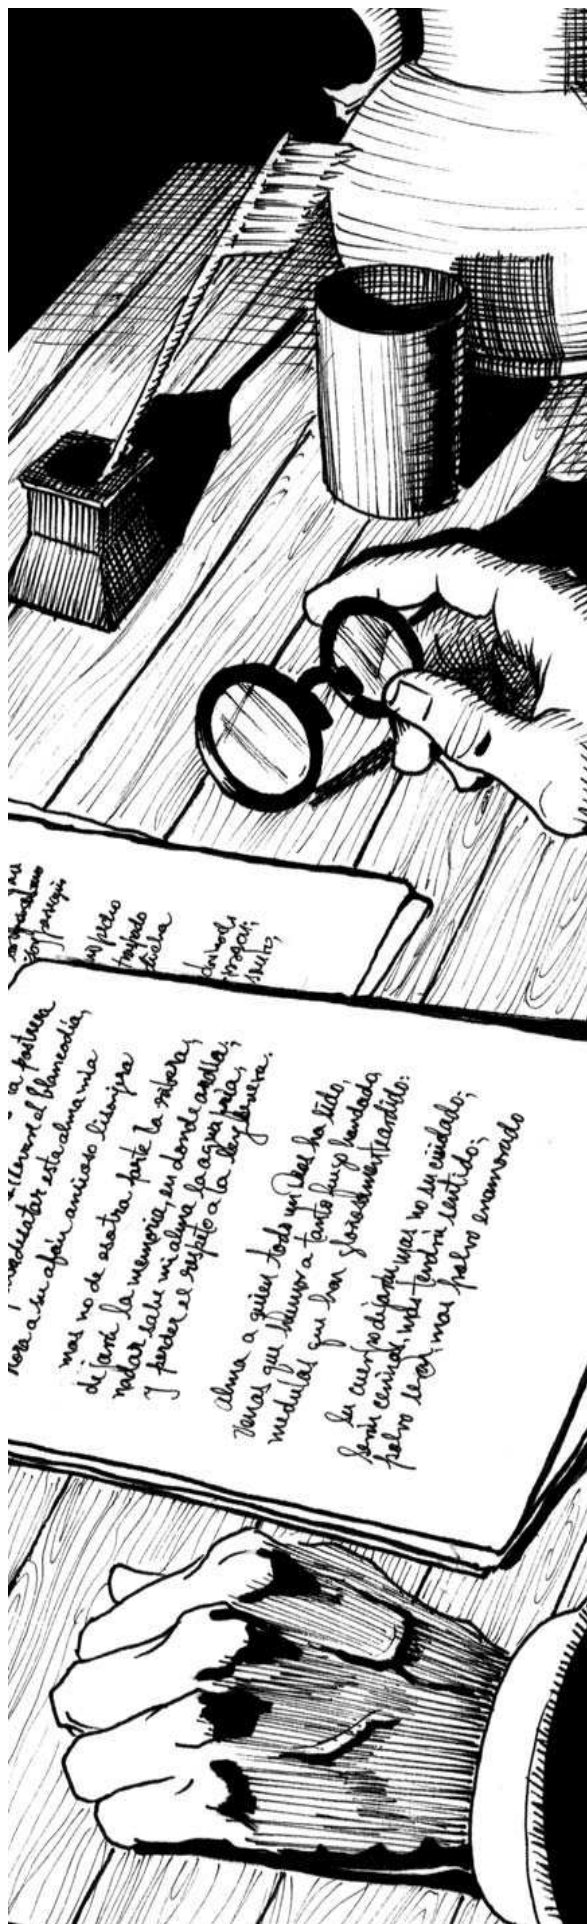 pecho
a postrera
llevare el blanco día,
desatar esta alma mia
hora a su afán ansioso lisonjera
mas no de esotra parte la ribera,
dejará la memoria, en donde ardía;
nadar sabe mi alma la agua fría,
y perder el respeto a la ley severa.
alma a quien todo un Dios ha sido,
venas que humor a tanto fuego han dado,
medulas que han gloriosamente ardido:
su cuerpo dejarán, mas no su cuidado;
serán ceniza, mas tendrá sentido;
polvo serán, mas polvo enamorado